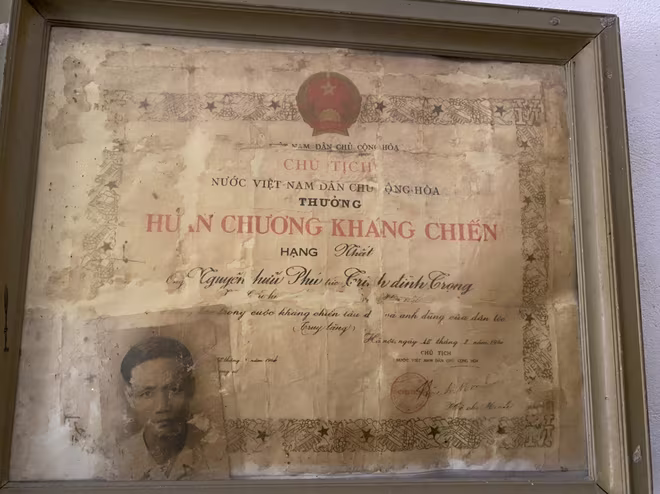 NAM DÂN CHỦ CỘNG HÒA
CHỦ TỊCH
NƯỚC VIỆT-NAM DÂN CHỦ CỘNG-HÒA
THƯỞNG
HUÂN CHƯƠNG KHÁNG CHIẾN
HẠNG Nhất
Ông Nguyễn hữu Phú tức Trịnh đình Trọng
Trong cuộc kháng chiến lâu và anh dũng của dân tộc
(Truy tặng)
Hà-nội, ngày tháng năm
CHỦ TỊCH
NƯỚC VIỆT NAM DÂN CHỦ CỘNG HÒA
tháng năm
Hồ chí Minh